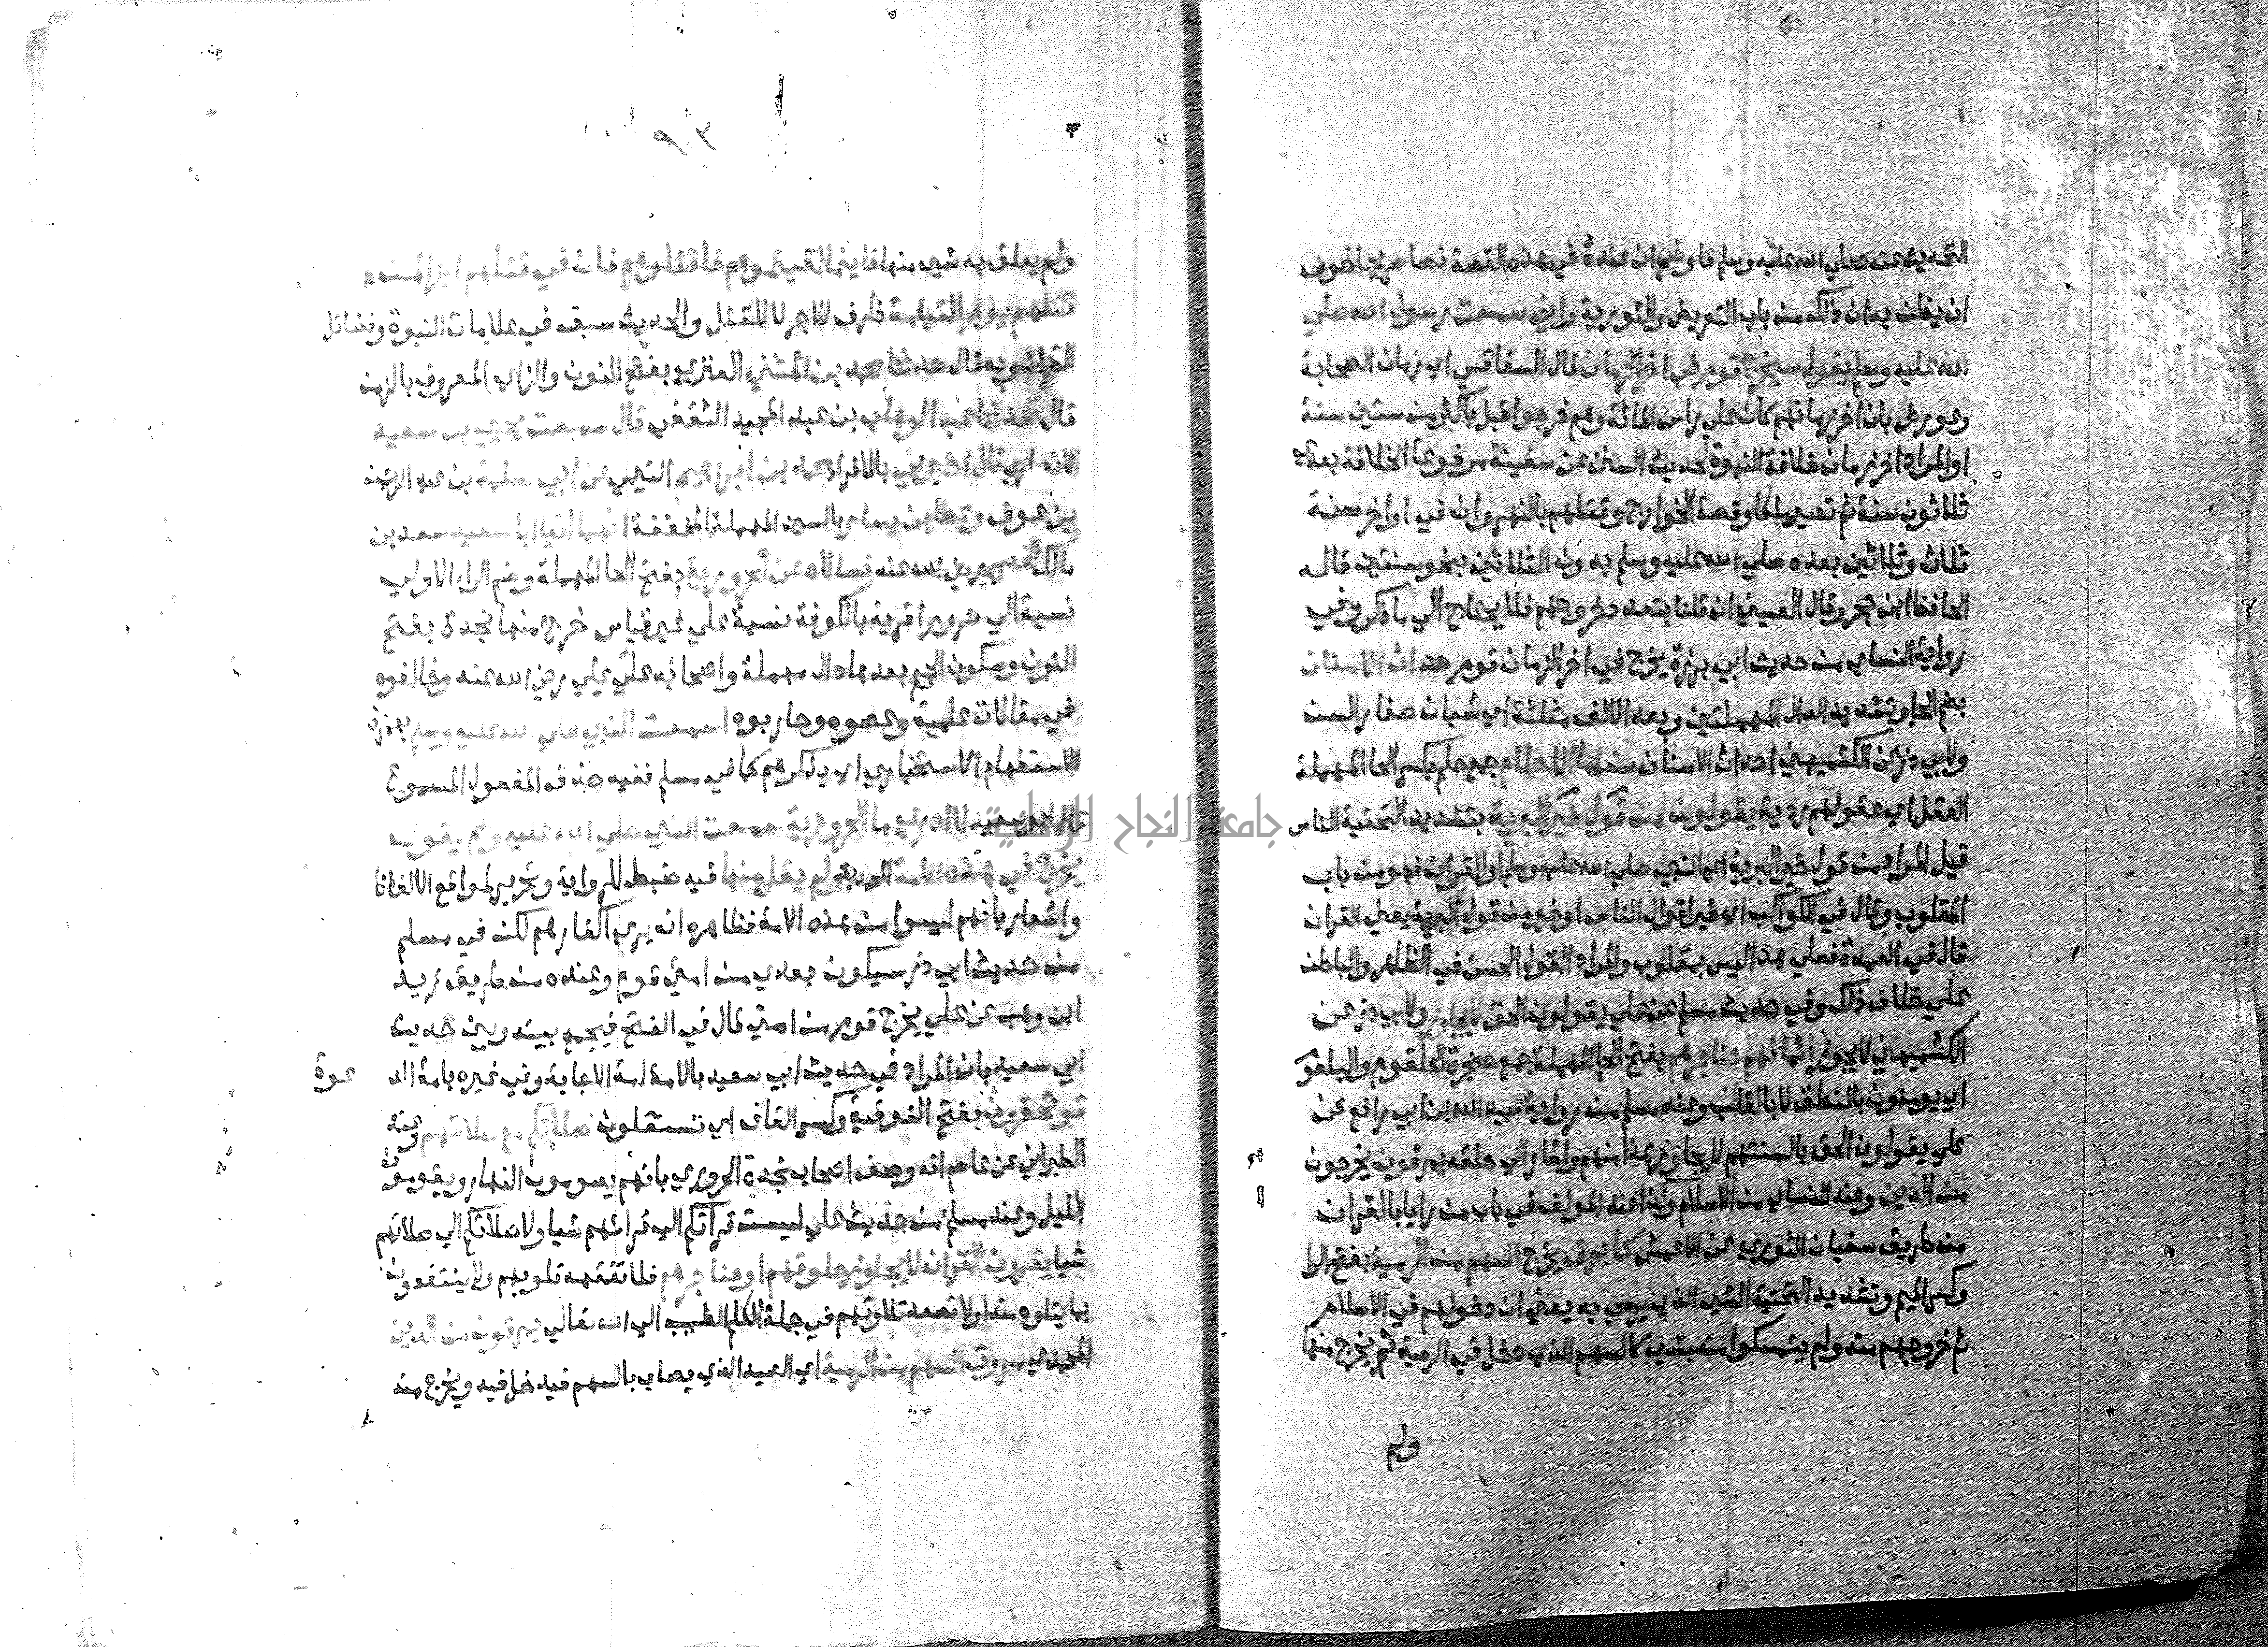 التحديث عنه صلي الله عليه وسلم فاوضح ان عنده في هذه القصة نصا صريحا خوف
ان يظن به ان ذلك من باب التعريض والتورية واني سمعت رسول الله صلي
الله عليه وسلم يقول سيخرج قوم في اخر الزمان قال السفاقسي اي زمان الصحابة
وعورض بان اخر زمانهم كان علي راس المائة وهم خرجوا قبل باكثر من ستين سنة
او المراد اخر زمان خلافة النبوة لحديث السنن عن سفينة مرفوعا الخلافة بعدي
ثلاثون سنة ثم تصير ملكا وقصة الخوارج وقتلهم بالنهروان في اواخر سنة
ثمان وثلاثين بعده صلي الله عليه وسلم بدون الثلاثين بنحو سنتين قاله
الحافظ ابن حجر وقال العيني ان قلنا بتعدد خروجهم فلا يحتاج الي ما ذكر وفي
رواية النساي من حديث ابي برزة يخرج في اخر الزمان قوم حداث الاسنان
بضم الحا وتشديد الدال المهملتين وبعد الالف مثلثة اي شبان صغار السن
ولابي ذر عن الكشميهني احداث الاسنان سفها الاحلام جمع حلم بكسر الحا المهملة
العقل اي عقولهم ردية يقولون من قول خير البرية بتشديد التحتية الناس
قيل المراد من قول خير البرية اي النبي صلي الله عليه وسلم او القران فهو من باب
المقلوب وقال في الكواكب اي خير اقوال الناس او خير من قول البرية يعني القران
قال في العمدة فعلي هذا ليس بمقلوب والمراد القول الحسن في الظاهر والباطن
علي خلاف ذلك وفي حديث مسلم عن علي يقولون الحق لا يجاوز ولابي ذر عن
الكشميهني لا يجوز ايمانهم حناجرهم بفتح الحا المهملة جمع حنجرة الحلقوم والبلعوم
اي يومنون بالنطق لا بالقلب وعند مسلم من رواية عبيد الله بن ابي رافع عن
علي يقولون الحق بالسنتهم لا يجاوز هذا منهم واشار الي حلقه يمرقون يخرجون
من الدين وعند النساي من الاسلام وكذا عند المولف في باب من رايا بالقران
من طريق سفيان الثوري عن الاعمش كما يمرق يخرج السهم من الرمية بفتح الرا
وكسر الميم وتشديد التحتية الشي الذي يرمي به يعني ان دخولهم في الاسلام
ثم خروجهم منه ولم يتمسكوا منه بشي كالسهم الذي دخل في الرمية ثم يخرج منها
ولم
ولم يعلق به شي منها فاينما لقيتموهم فاقتلوهم فان في قتلهم اجرا لمن
قتلهم يوم القيامة ظرف للاجر لا للقتل والحديث سبق في علامات النبوة وفضائل
القران وبه قال حدثنا محمد بن المثني العنزي بفتح النون والزاي المعروف بالزمن
قال حدثنا عبد الوهاب بن عبد المجيد الثقفي قال سمعت يحيي بن سعيد
الانصاري قال اخبرني بالافراد محمد بن ابراهيم التيمي عن ابي سلمة بن عبد الرحمن
بن عوف وعطا بن يسار بالسين المهملة المخففة انهما اتيا ابا سعيد سعد بن
مالك رضي الله عنه فسالاه عن الحرورية بفتح الحا المهملة وضم الرا الاولي
نسبة الي حرورا قرية بالكوفة نسبة علي غير قياس خرج منها نجدة بفتح
النون وسكون الجيم بعدها دال مهملة واصحابه علي علي رضي الله عنه وخالفوه
في مقالات علمية وعصوه وحاربوه اسمعت النبي صلي الله عليه وسلم بهمزة
الاستفهام الاستخباري اي يذكرهم كما في مسلم ففيه حذف المفعول المسموع
قال ابو سعيد لا ادري ما الحرورية سمعت النبي صلي الله عليه وسلم يقول
يخرج في هذه الامة المحمدية ولم يقل منها فيه ضبط للرواية وتحرير لمواقع الالفاظ
واشعار بانهم ليسوا من هذه الامة فظاهره انه يري اكفارهم لكن في مسلم
من حديث ابي ذر سيكون بعدي من امتي قوم وعنده من طريق زيد
ابن وهب عن علي يخرج قوم من امتي قال في الفتح فيجمع بينه وبين حديث
ابي سعيد بان المراد في حديث ابي سعيد بالامة امة الاجابة وفي غيره بامة الد عوة
قوم تحقرون بفتح الفوقية وكسر القاف اي تستقلون صلاتكم مع صلاتهم وعند
الطبراني عن عاصم انه وصف اصحاب نجدة الحروري بانهم يصومون النهار ويقومون
الليل وعند مسلم من حديث علي ليست قراتكم الي قراتهم شيا ولا صلاتكم الي صلاتهم
شيا يقرون القران لا يجاوز حلوقهم او حناجرهم فلا تفقهه قلوبهم ولا ينتفعون
بما يتلوه منه او لا تصعد تلاوتهم في جملة الكلم الطيب الي الله تعالي يمرقون من الدين
المحمدي مروق السهم من الرمية اي الصيد الذي يصاب بالسهم فيدخل فيه ويخرج منه
جامعة النجاح الوطنية